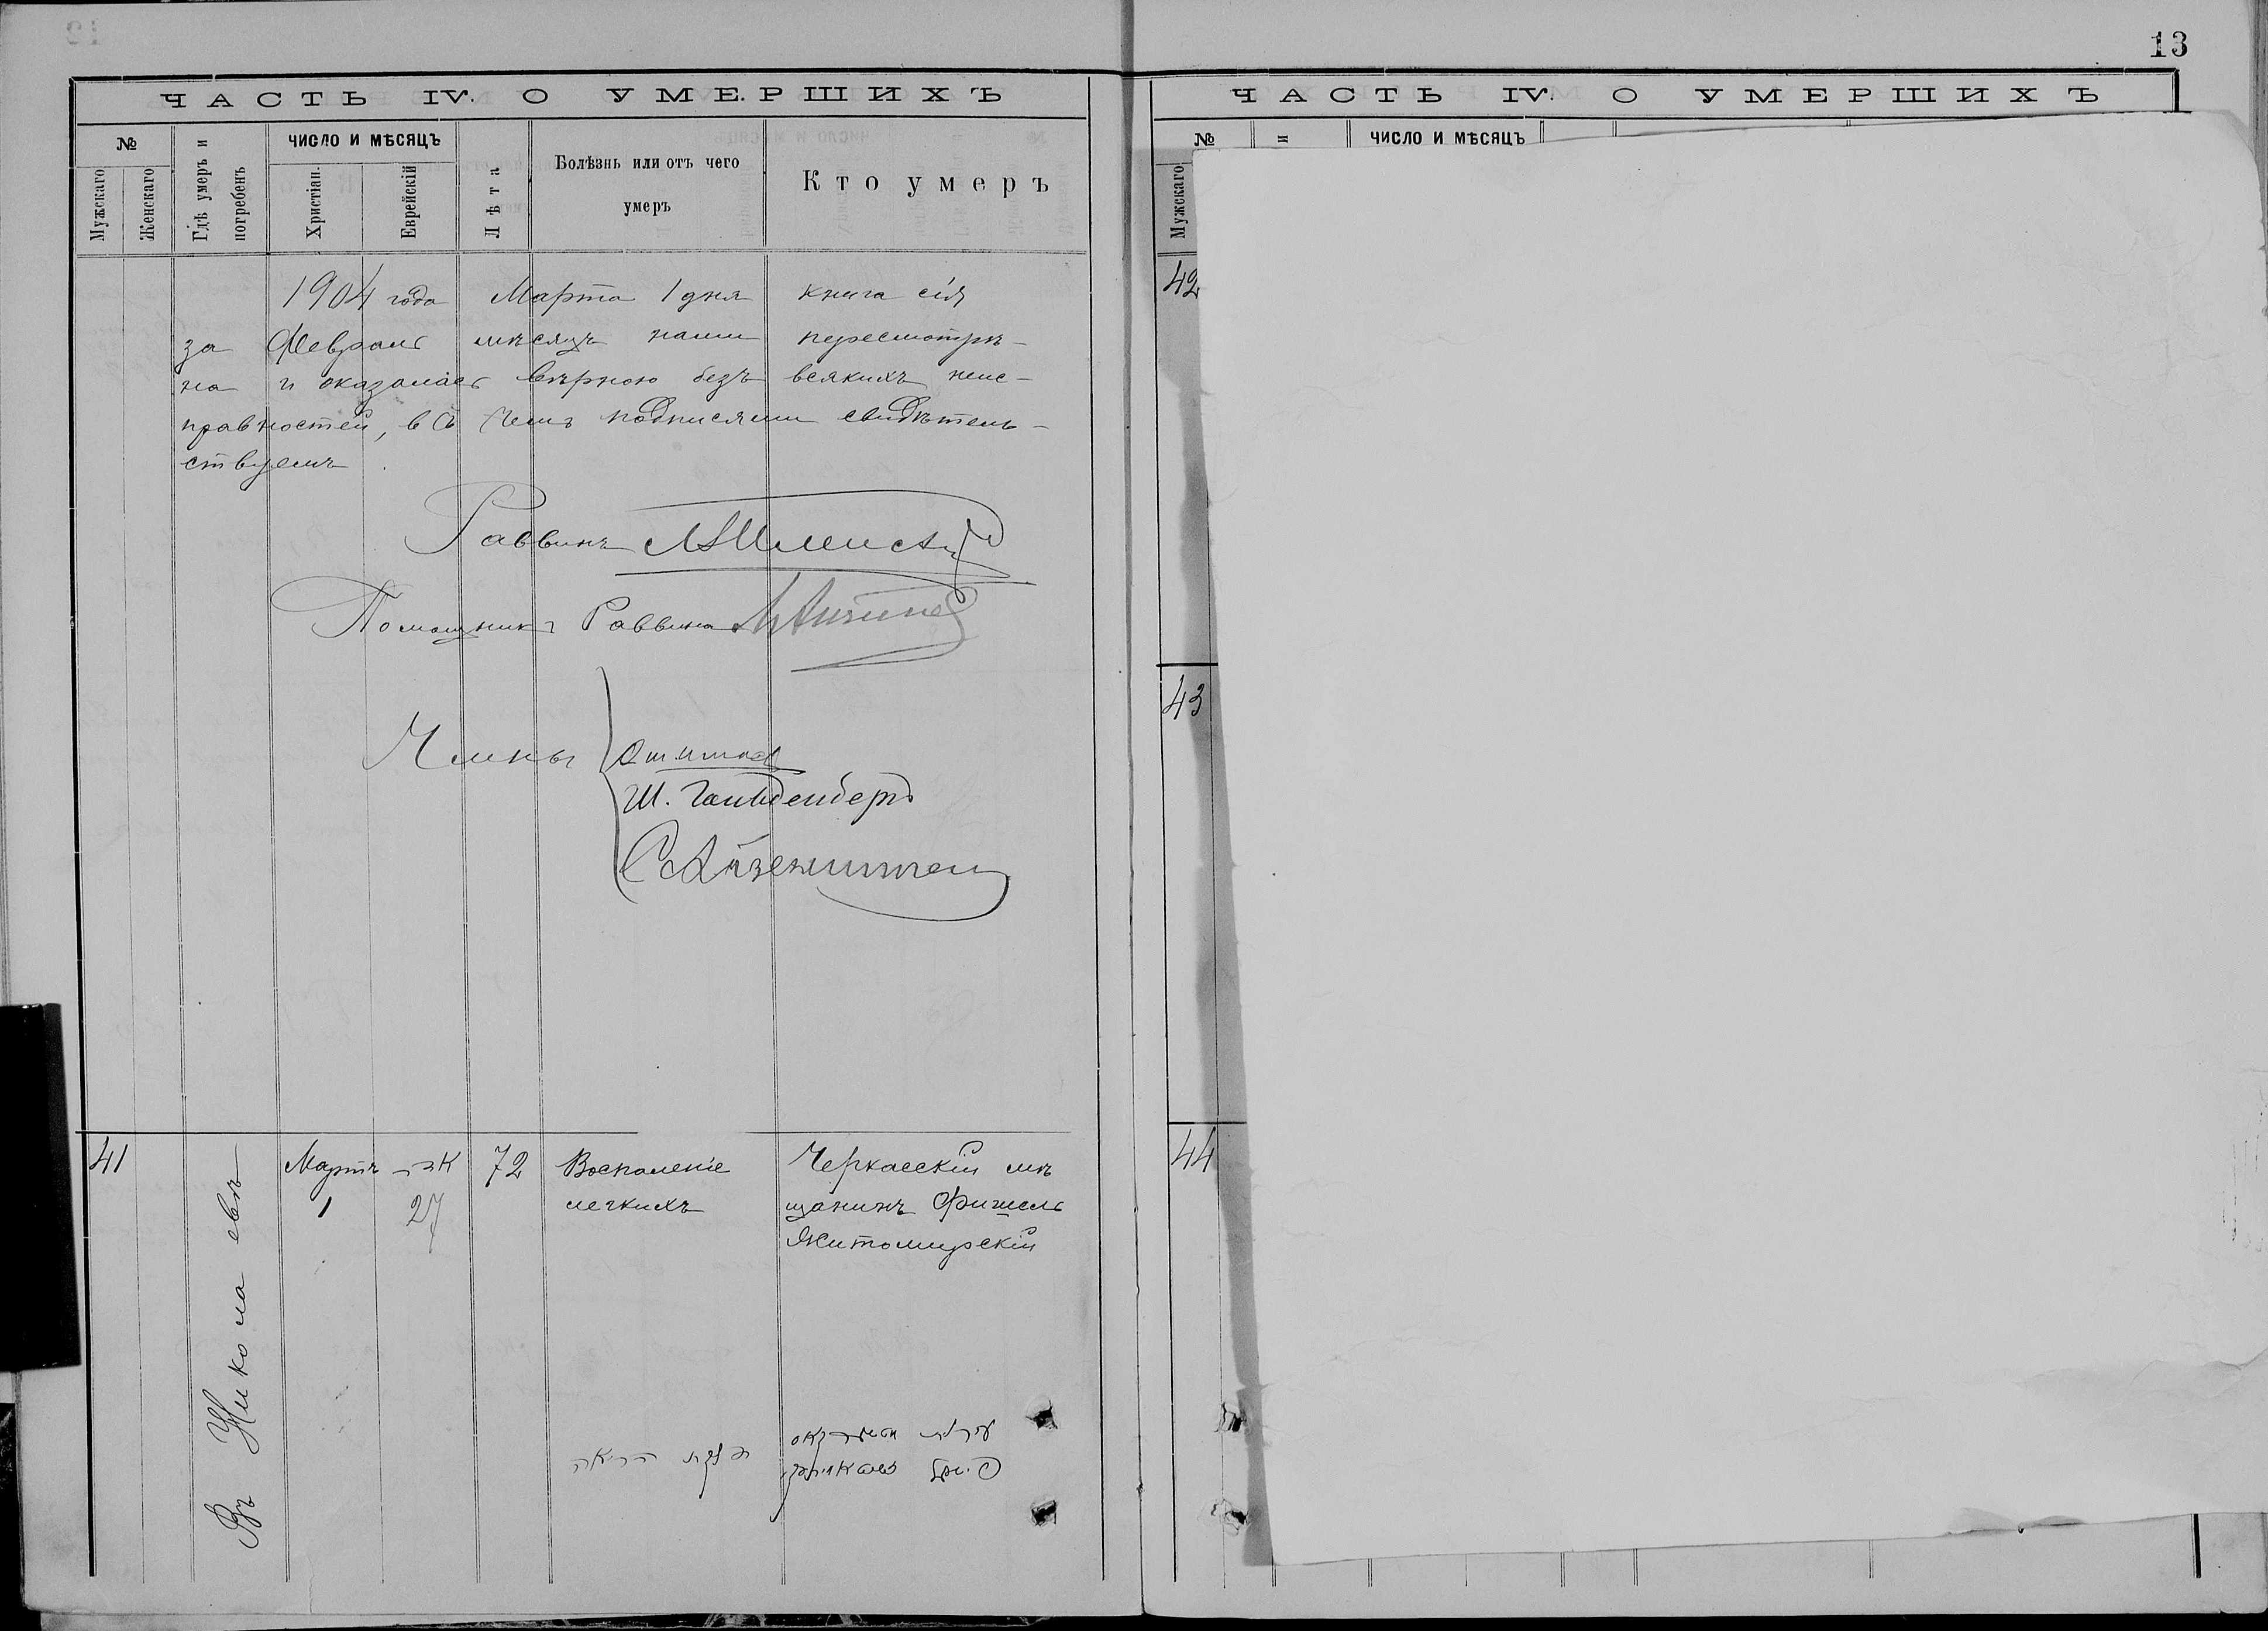 13
ЧАСТЬ IV. О УМЕРШИХЪ
№
Мужскаго
Женскаго
Гдѣ умеръ и погребенъ
ЧИСЛО И МѢСЯЦЪ
Христіан.
Еврейскій
Лѣта
Болѣзнь или отъ чего
умеръ
Кто умеръ
1904 года Марта 1 дня книга сія
за Февраль мѣсяцъ нами пересмотрѣ-
на и оказалась вѣрною безъ всякихъ неис-
правностей, въ чемъ подписями свидѣтель-
ствуемъ.
Раввинъ
Помощникъ Раввина
Члены
Ш. Гольденбергъ
41
Въ Николаевѣ
Мартъ
1
אדר
27
72
Воспаленіе
легкихъ
Черкасскій мѣ
щанинъ Фишель
Житомирскій
דלקת הריאה
פישל
ЧАСТЬ IV. О УМЕРШИХЪ
№
и
ЧИСЛО И МѢСЯЦЪ
Мужскаго
42
43
44